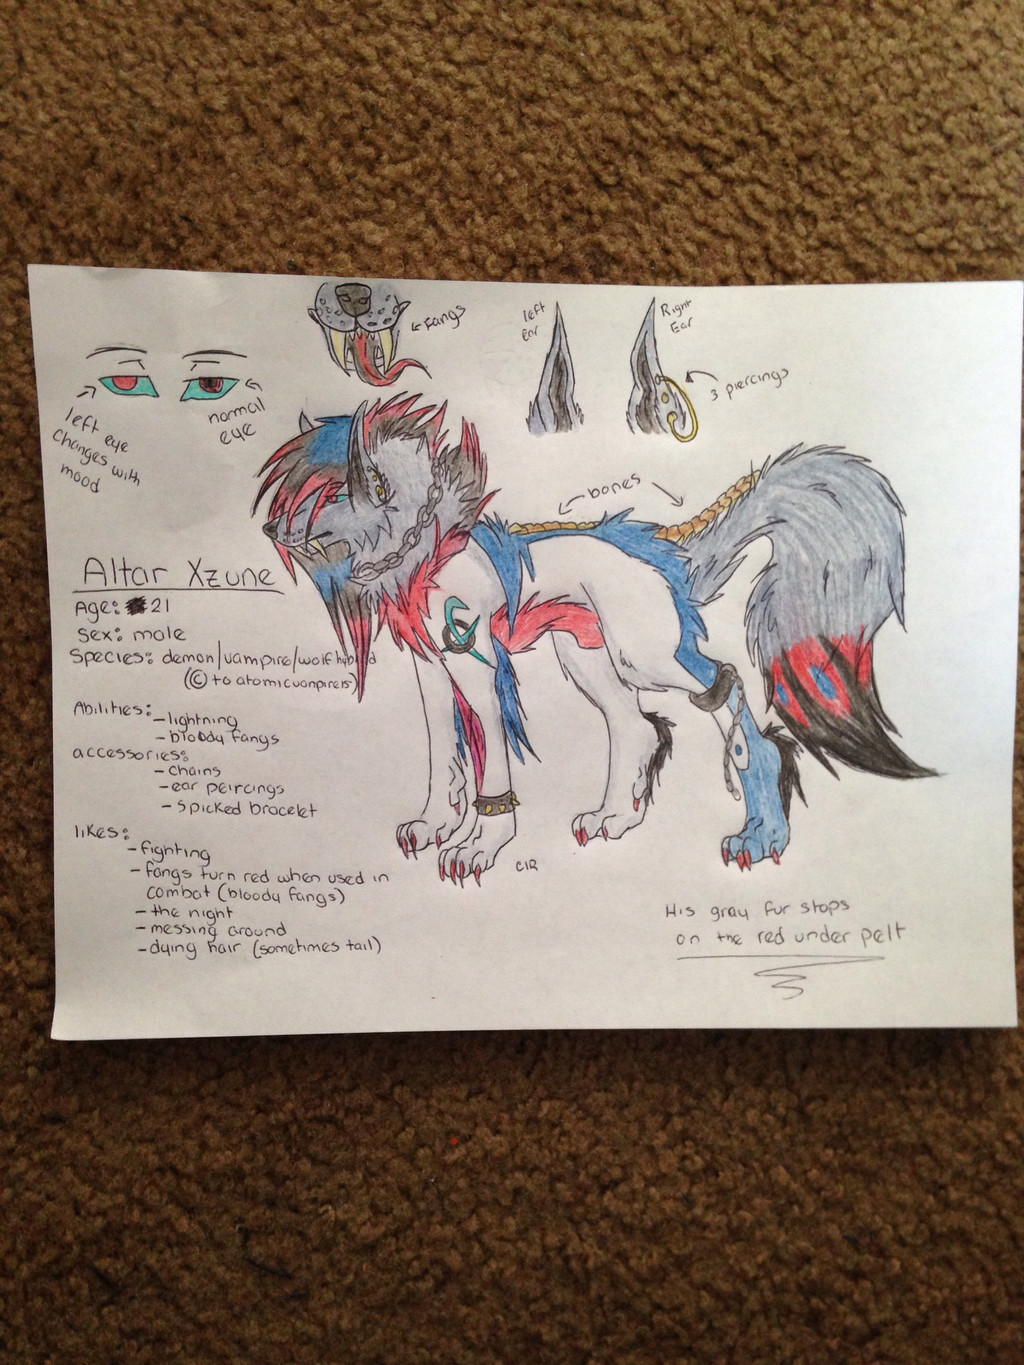 Fangs
left
Ear
Right
Ear
3 piercings
left eye
changes with
mood
normal
eye
bones
Altar Xzune
Age: 21
Sex: male
Species: demon/vampire/wolf hybrid
(© to atomicvanpireis)
Abilities:
-lightning
-bloody fangs
accessories:
-chains
-ear peircings
-spicked bracelet
likes:
-fighting
-fangs turn red when used in
combat (bloody fangs)
-the night
-messing around
-dying hair (sometimes tail)
CIR
His gray fur stops
on the red under pelt